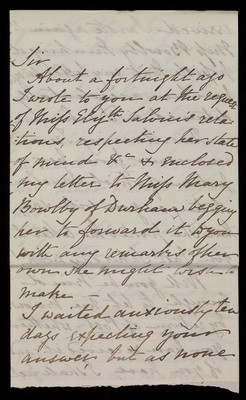 Sir
About a fortnight ago
I wrote to you at the request
of Miss Elizth Salvin's rela-
tions, respecting her state
of mind &c & enclosed
my letter to Miss Mary
Bowlby of Durham begging
her to forward it to you
with any remarks of her
own she might wish to
make —
I waited anxiously ten
days expecting your
answer, but as none